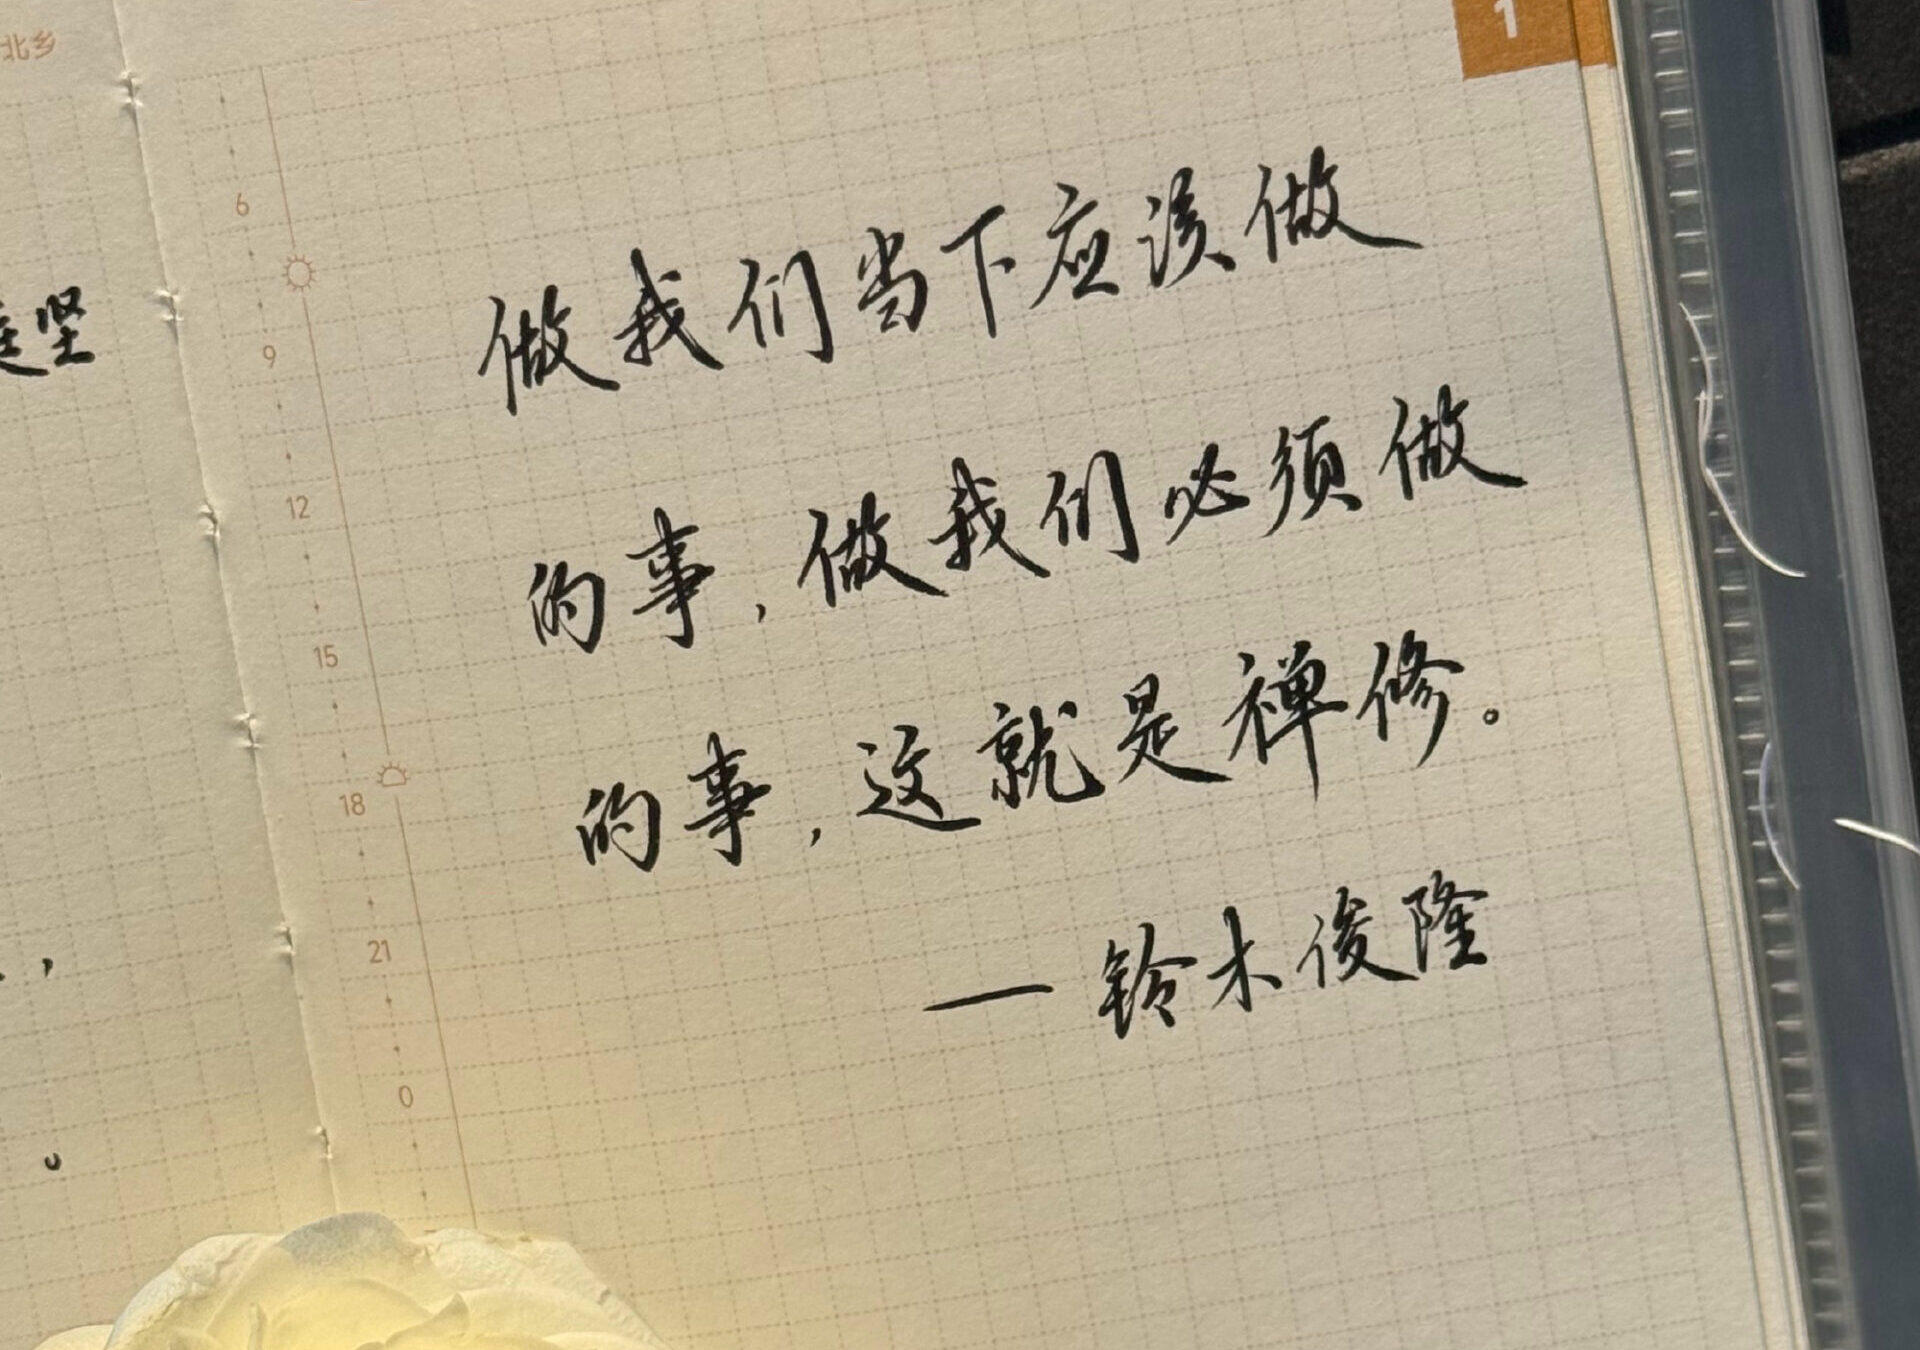 北乡
坚
1
6
9
12
15
18
21
0
做我们当下应该做
的事,做我们必须做
的事,这就是禅修。
—铃木俊隆